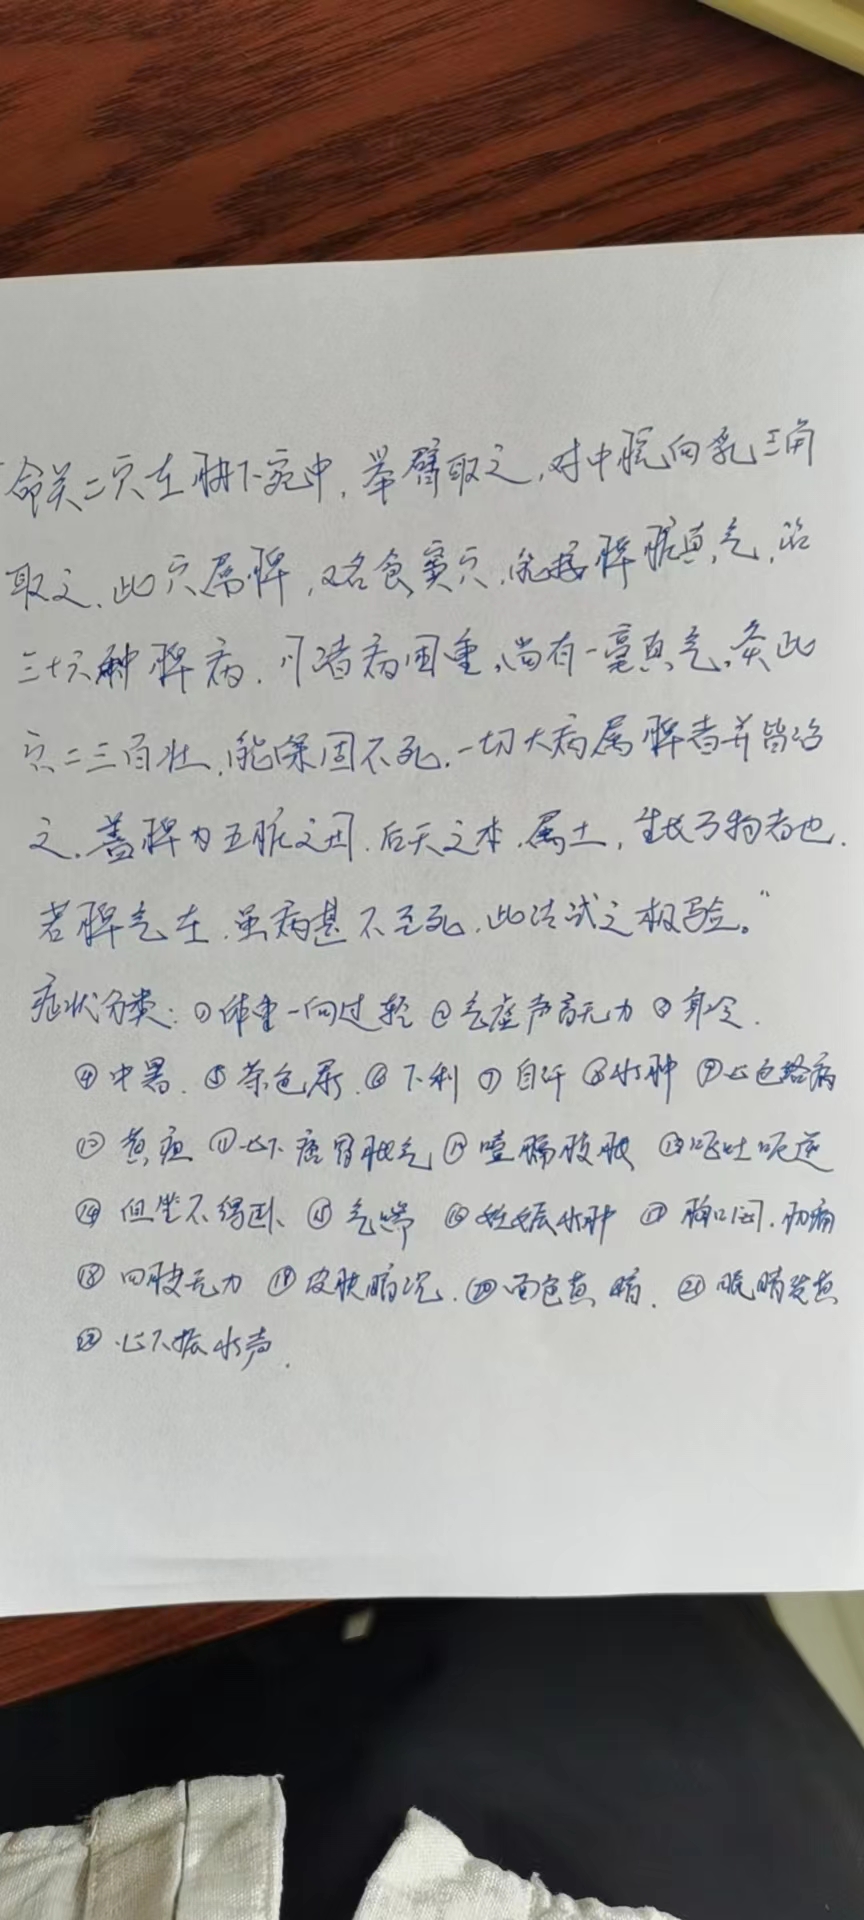 “命关二穴在胁下宛中，举臂取之，对中脘向乳三角
取之，此穴属脾，又名食窦穴，能接脾脏真气，治
三十六种脾病，凡诸病困重，尚有一毫真气，灸此
穴二三百壮，能保固不死，一切大病属脾者并皆治
之，盖脾为五脏之母，后天之本，属土，生长万物者也，
若脾气在，虽病甚不至死，此法试之极验。”
症状分类：①体重一向过轻 ②气虚声音无力 ③身冷.
④中暑. ⑤茶色尿. ⑥下利 ⑦自汗 ⑧水肿 ⑨心包络病
⑩黄疸 ⑪心下痞胃胀气 ⑫噎膈腹胀 ⑬呕吐呃逆
⑭但坐不得卧、⑮气喘 ⑯妊娠水肿 ⑰胸口闷.肋痛
⑱四肢无力 ⑲皮肤暗沉. ⑳面色黄暗. ㉑眼睛发黄
㉒心下振水声.